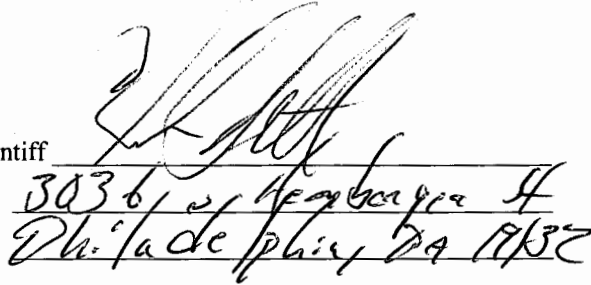 ntiff
3036 N Hemberger St
Philadelphia, PA 19132